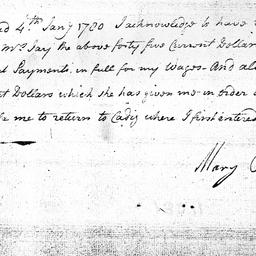 d 4th Jany 1780 I acknowledge to have
Mrs Jay the above forty five Current Dollar
Payments, in full for my Wages - And al
Dollars which she has given me in order
me to return to Cadiz where I first entered
Mary